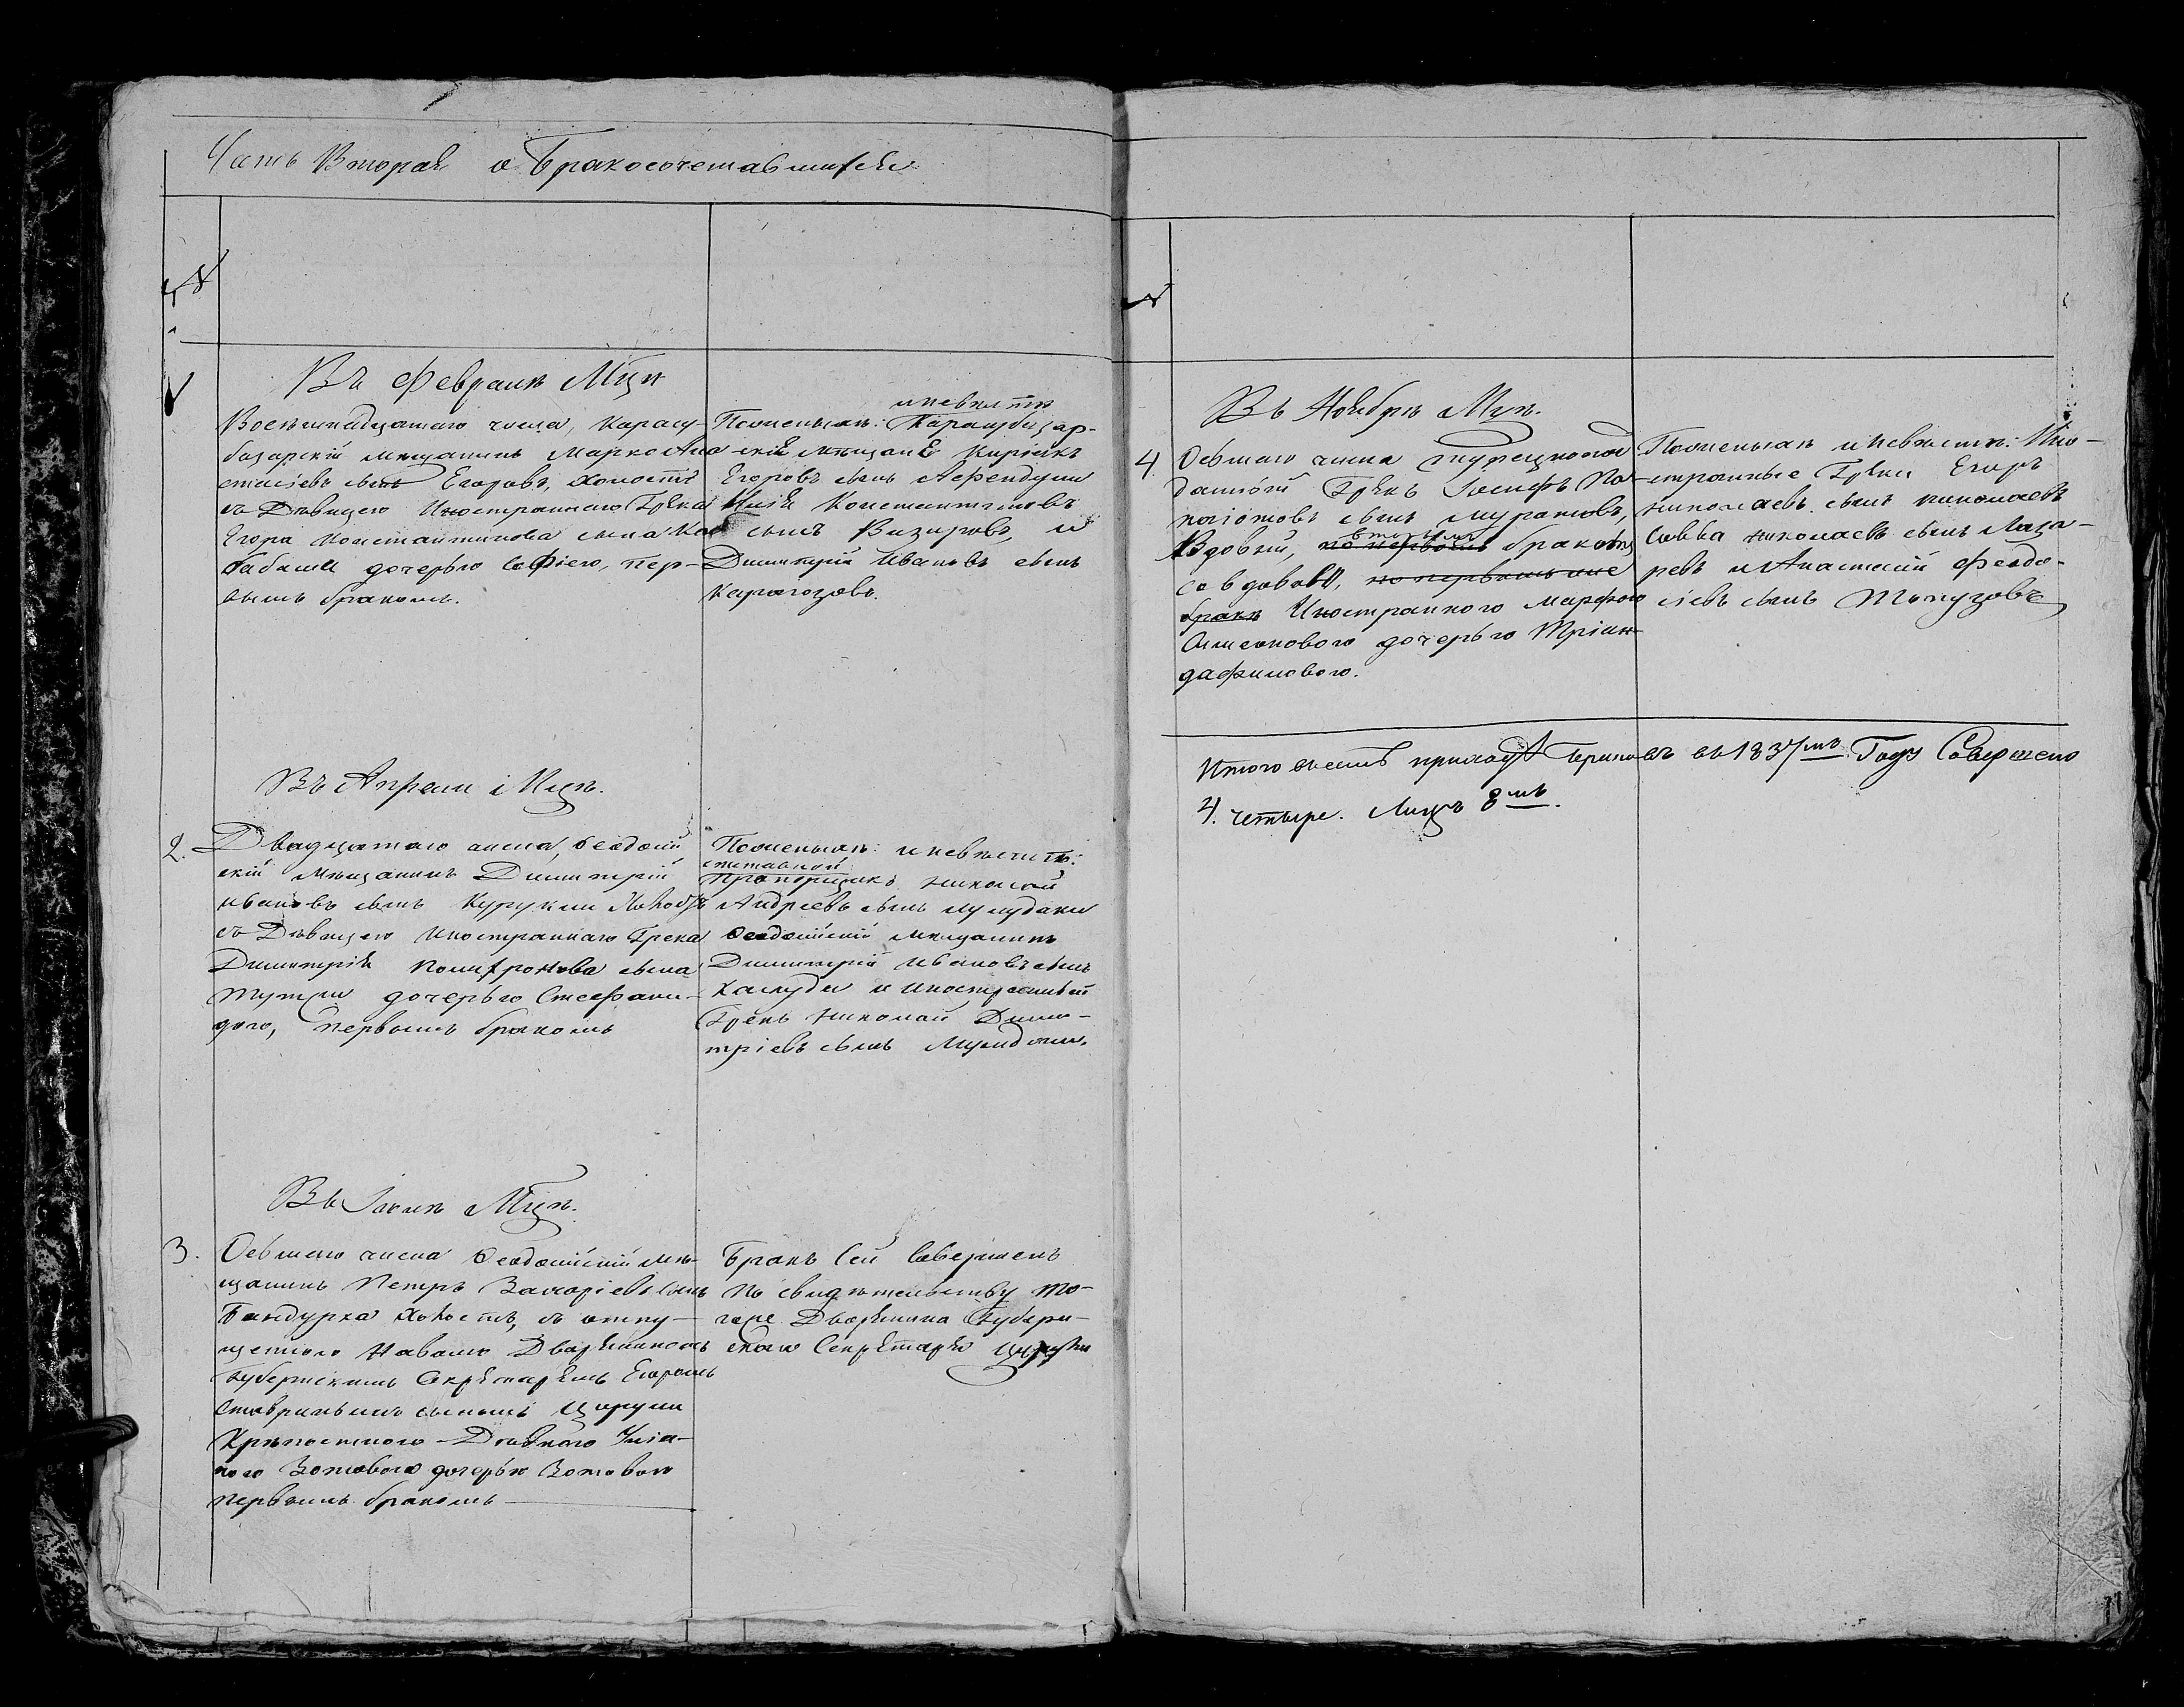 Часть Вторая о бракосочетавшихся
№
Въ Февралѣ Мцѣ
Восемнадцатаго числа, Карасу-
базарскій мѣщанинъ Марко Ана
стасіевъ сынъ Егоровъ, холостъ
съ Дѣвицею Иностраннаго Грека
Егора Константинова сына Ка
бабаши дочерью Софіею, пер-
вымъ бракомъ.
По женихѣ: и невѣстѣ Карасубазар-
скіе мѣщане Киріякъ
Егоровъ сынъ Афендули
Илія Константиновъ
сынъ Визировъ, и
Димитрій Ивановъ сынъ
Карагозовъ.
Въ Апрели Мцѣ.
2. Двадцатаго числа, Ѳеодосій
скій мѣщанинъ Димитрій
Ивановъ сынъ холостъ
съ Дѣвицею Иностраннаго Грека
Димитрія сына
дочерью Стефани-
дою, первымъ бракомъ
По женихѣ: и невѣстѣ:
отставной
прапорщикъ Николай
Андреевъ сынъ
Ѳеодосійскій мѣщанинъ
Димитрій Ивановъ сынъ
и иностранный
Грекъ Николай Дими-
тріевъ сынъ
Въ Іюлѣ Мцѣ.
3. Осьмаго числа Ѳеодосійскій мѣ-
щанинъ Петръ Захаріевъ сынъ
Бандурка холостъ, съ отпу-
щенною на волю Дворяниномъ
Губернскимъ Секретаремъ Егоромъ
сыномъ Цирули
Крѣпостною Дѣвкою Уліа-
ною Зотовою дочерью Зотовою
первымъ бракомъ
Бракъ Сей Совершенъ
по свидѣтельству то-
гоже Дворянина Губерн-
скаго Секретаря Цирули
№
Въ Ноябрѣ Мцѣ.
4. Осьмаго числа турецкопод
данный Грекъ Іосифъ Па-
наіотовъ сынъ Муратовъ,
Вдовый, по первомъ вторымъ бракомъ
со вдовою, по первомъ
бракѣ Иностранною Марфою
Симеоновою дочерью Тріан-
дафиловою.
По женихѣ и невѣстѣ: Ино-
странные Греки Егоръ
Николаевъ сынъ Николаевъ
Савва Николаевъ сынъ Лаза-
ревъ и Анастасій Феодо-
сіевъ сынъ
Итого въ семъ приходѣ браковъ въ 1837мъ Году Совершено
4. четыре. Лицъ 8мь.